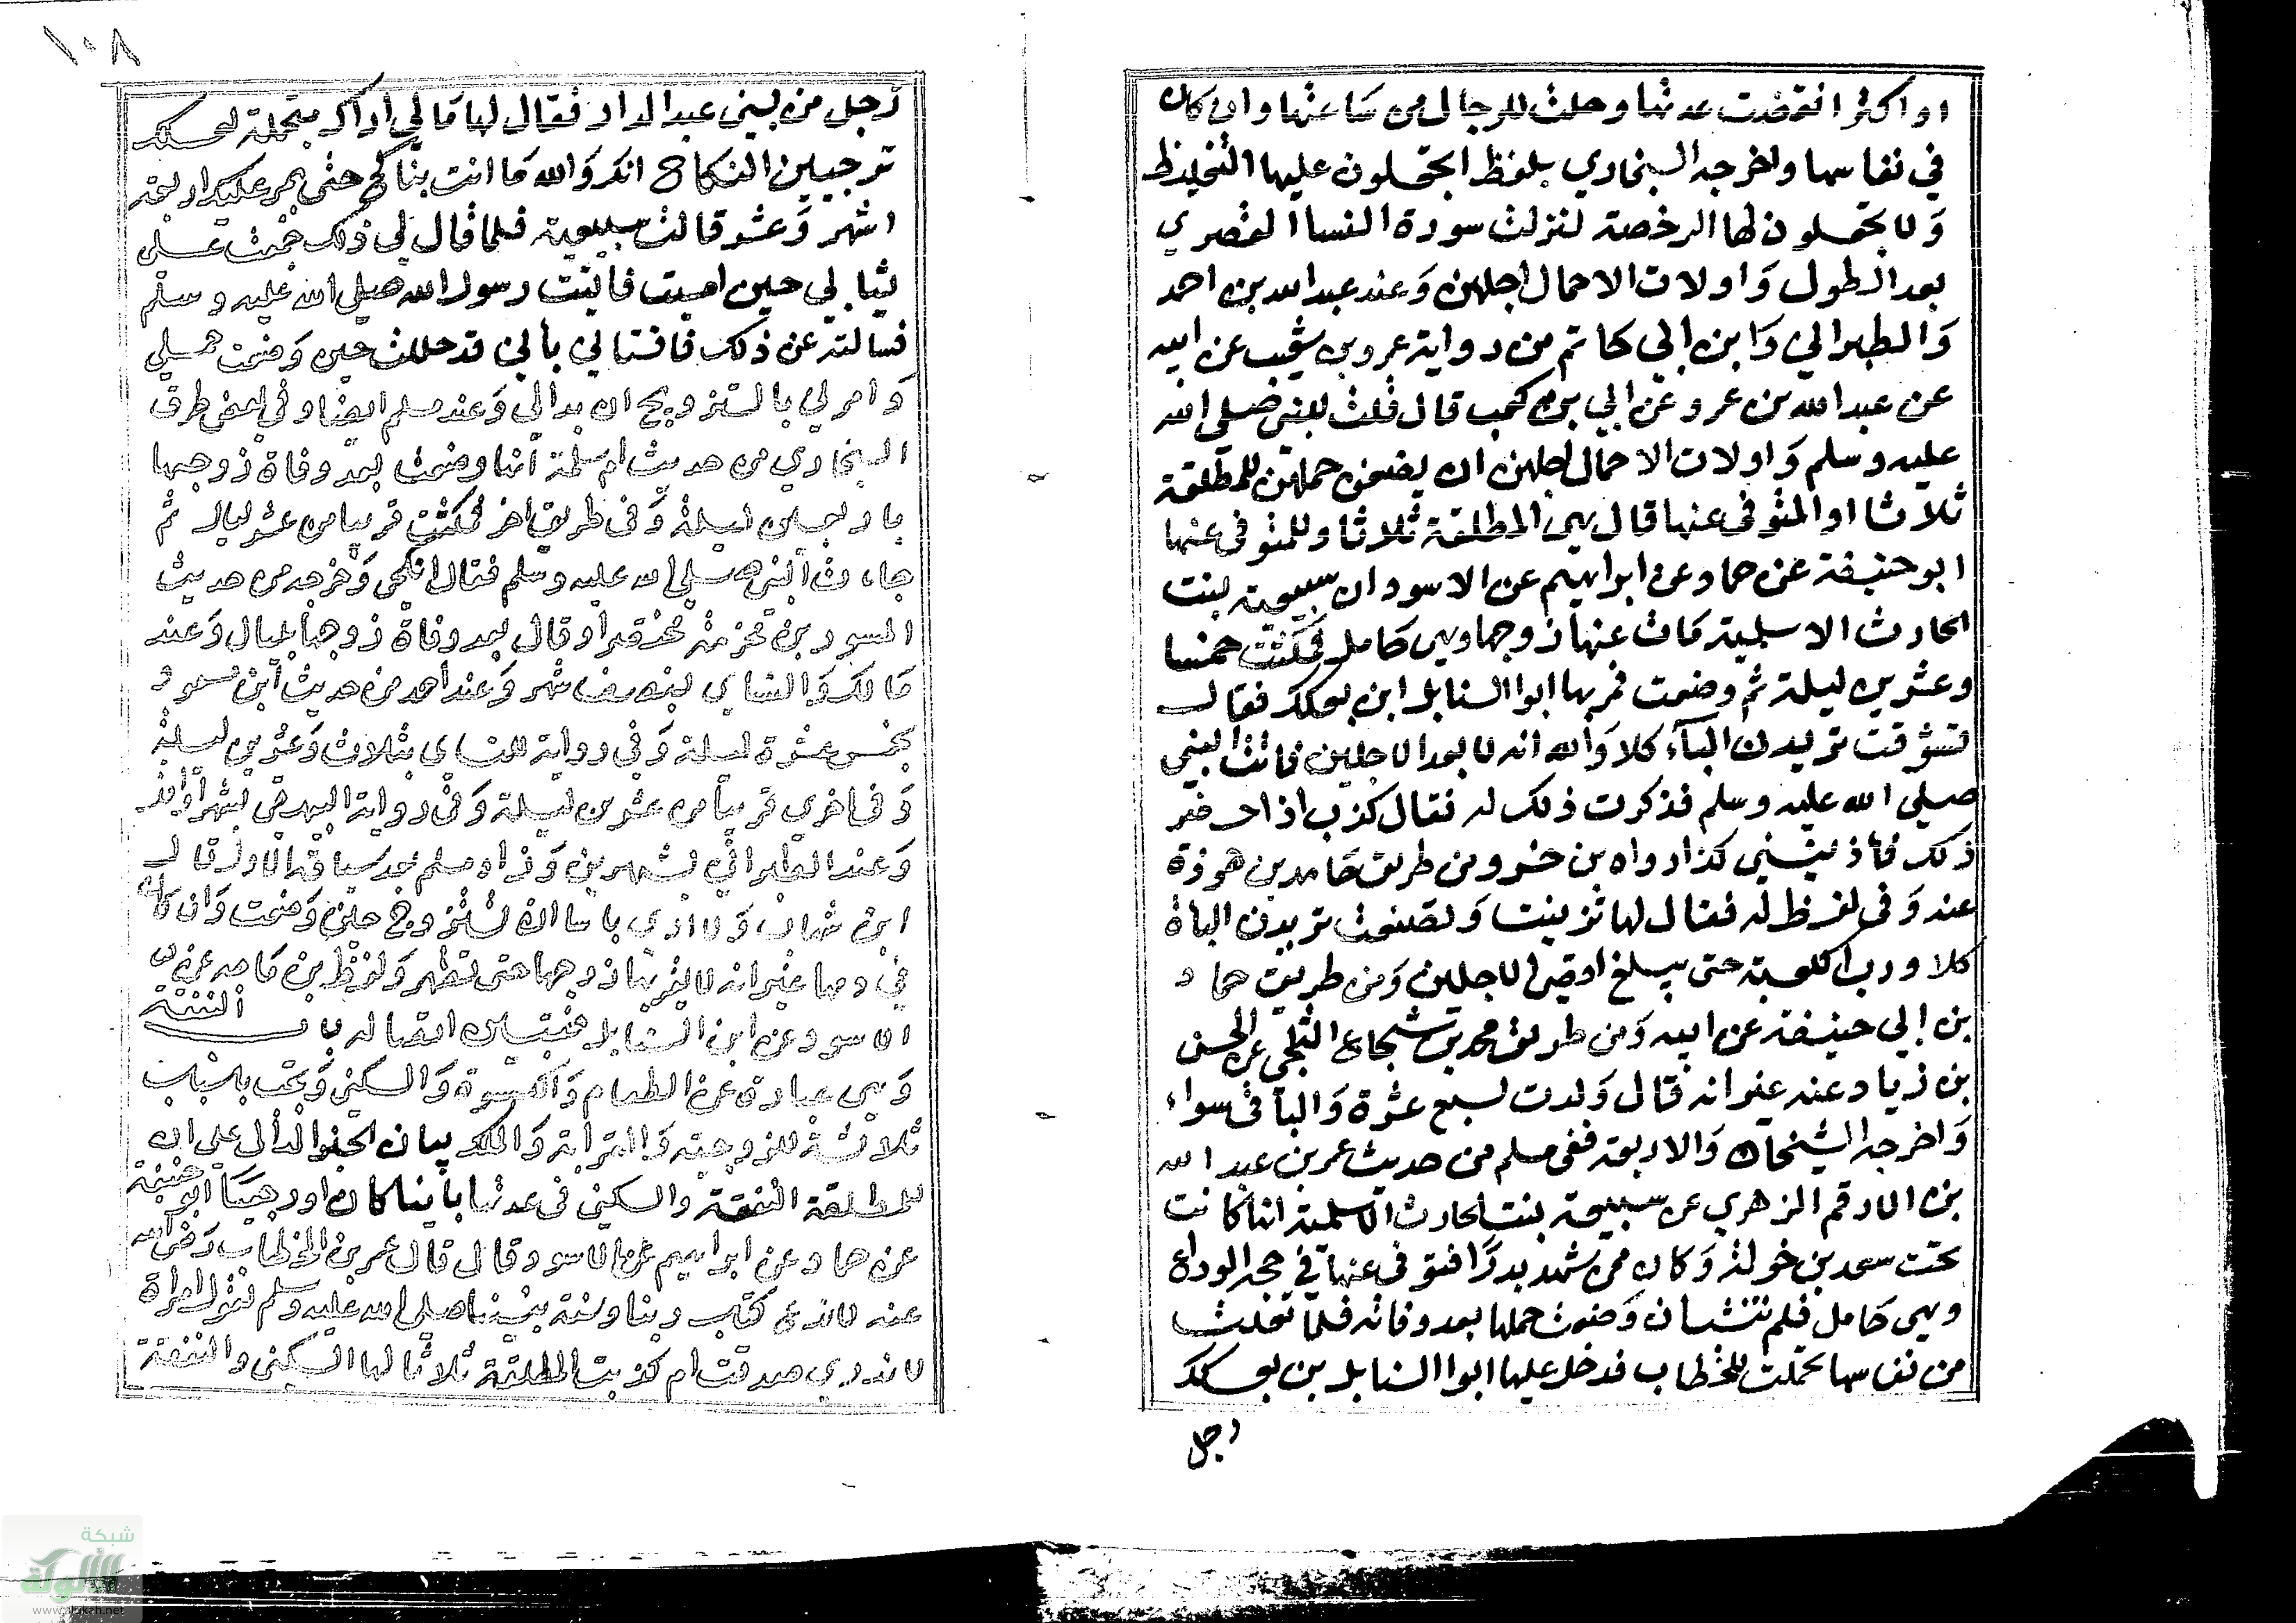 او اكثر انقضت عدتها وحلت للرجال من ساعتها وان كان
في نفاسها واخرجه البخاري بلفظ اتجعلون عليها التغليظ
ولا تجعلون لها الرخصة لنزلت سورة النسا القصري
بعد الطول واولات الاحمال اجلهن وعند عبد الله بن احمد
والطبراني وابن ابي حاتم من رواية عمرو بن شعيب عن ابيه
عن عبد الله بن عمرو عن ابي بن كعب قال قلت للنبي صلى الله
عليه وسلم واولات الاحمال اجلهن ان يضعن حملهن للمطلقة
ثلاثا او المتوفى عنها قال هي المطلقة ثلاثا وللمتوفى عنها
ابو حنيفة عن حماد عن ابراهيم عن الاسود ان سبيعة بنت
الحارث الاسلمية مات عنها زوجها وهي حامل فمكثت خمسا
وعشرين ليلة ثم وضعت فمر بها ابوا السنابل ابن بعكك فقال
تشوقت تريدين الباء كلا والله انه لا بعد الاجلين فاتت النبي
صلى الله عليه وسلم فذكرت ذلك له فقال كذب اذا حضر
ذلك فأذنيني كذا رواه بن خسرو من طريق حامد بن هوذة
عنه وفي لفظ له فقال لها تزينت وتصنعت تريدين الباة
كلا ورب الكعبة حتى يبلغ اوقص الاجلين ومن طريق حماد
بن ابي حنيفة عن ابيه ومن طريق محمد بن شجاع الثلجي عن الحسن
بن زياد عنه غير انه قال ولدت لسبع عشرة والباقي سواء
واخرجه الشيخان والاربعة ففي مسلم من حديث عمر بن عبد الله
بن الارقم الزهري عن سبيعة بنت الحارث الاسلمية انها كانت
تحت سعد بن خولة وكان ممن شهد بدرا فتوفى عنها في حجة الوداع
وهي حامل فلم تنشب ان وضعت حملها بعد وفاته فلما تعلت
من نفاسها تجملت للخطاب فدخل عليها ابوا السنابل بن بعكك
رجل
١٠٨
رجل من بني عبد الدار فقال لها مالي اراك متجملة لعلك
ترجيين النكاح انك والله ما انت بناكح حتى يمر عليك اربعة
اشهر وعشر قالت سبيعة فلما قال لي ذلك جمعت على
ثيابي حين امسيت فاتيت رسول الله صلى الله عليه وسلم
فسالته عن ذلك فافتاني بأني قد حللت حين وضعت حملي
وامرني بالتزويج ان بدالي وعند مسلم ايضا وفي بعض طرق
البخاري من حديث ام سلمة انها وضعت بعد وفاة زوجها
باربعين ليلة وفي طريق اخر فمكثت قريبا من عشر ليال ثم
جاءت النبي صلى الله عليه وسلم فقال انكحي وخرجه من حديث
المسور بن مخرمة مختصرا وقال بعد وفاة زوجها بليال وعند
مالك والنساي بنصف شهر وعند احمد من حديث ابن مسعود
بخمس عشرة ليلة وفي رواية للنساي بثلاث وعشرين ليلة
وفي اخري قريبا من عشرين ليلة وفي رواية البيهقي بشهر او اقل
وعند الطبراني بشهرين وزاد مسلم بعد سياقه الاول قال
ابن شهاب ولا اري باسا ان تتزوج حين وضعت وان كان
في دمها غير انه لا يقربها زوجها حتى تطهر ولفظ بن ماجه عن
الاسود عن ابن السنابل فتبين اتصاله باب النفقة
وهي عبارة عن الطعام والكسوة والسكنى وتجب باسباب
ثلاثة للزوجية والقرابة والملك بيان الخبر الدال على ان
للمطلقة النفقة والسكنى في عدتها بأينا كان او رجعيا ابو حنيفة
عن حماد عن ابراهيم عن الاسود قال قال عمر بن الخطاب رضي الله
عنه لا ندع كتاب ربنا وسنة نبينا صلى الله عليه وسلم لقول امراة
لا ندري صدقت ام كذبت المطلقة ثلاثا لها السكنى والنفقة
شبكة
الألوكة
www.alukah.net